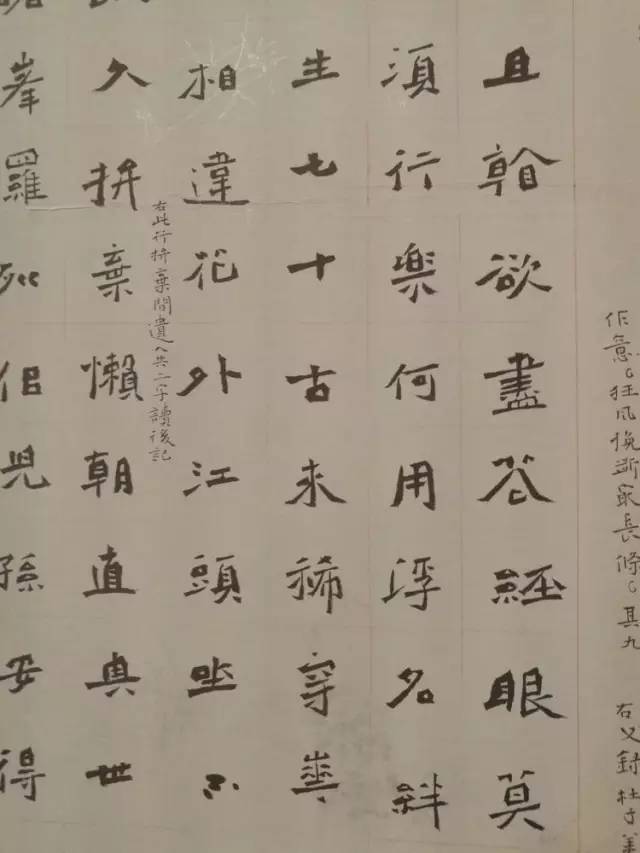 作意。狂风挽斷最長條。其九 右又錄杜子美
且看欲盡花經眼莫
須行樂何用浮名絆
生七十古来稀穿華
相違花外江頭坐不
右此行拚棄間遺人共二字讀後記
久拚棄懶朝直與世
峯羅列侣児孫安得